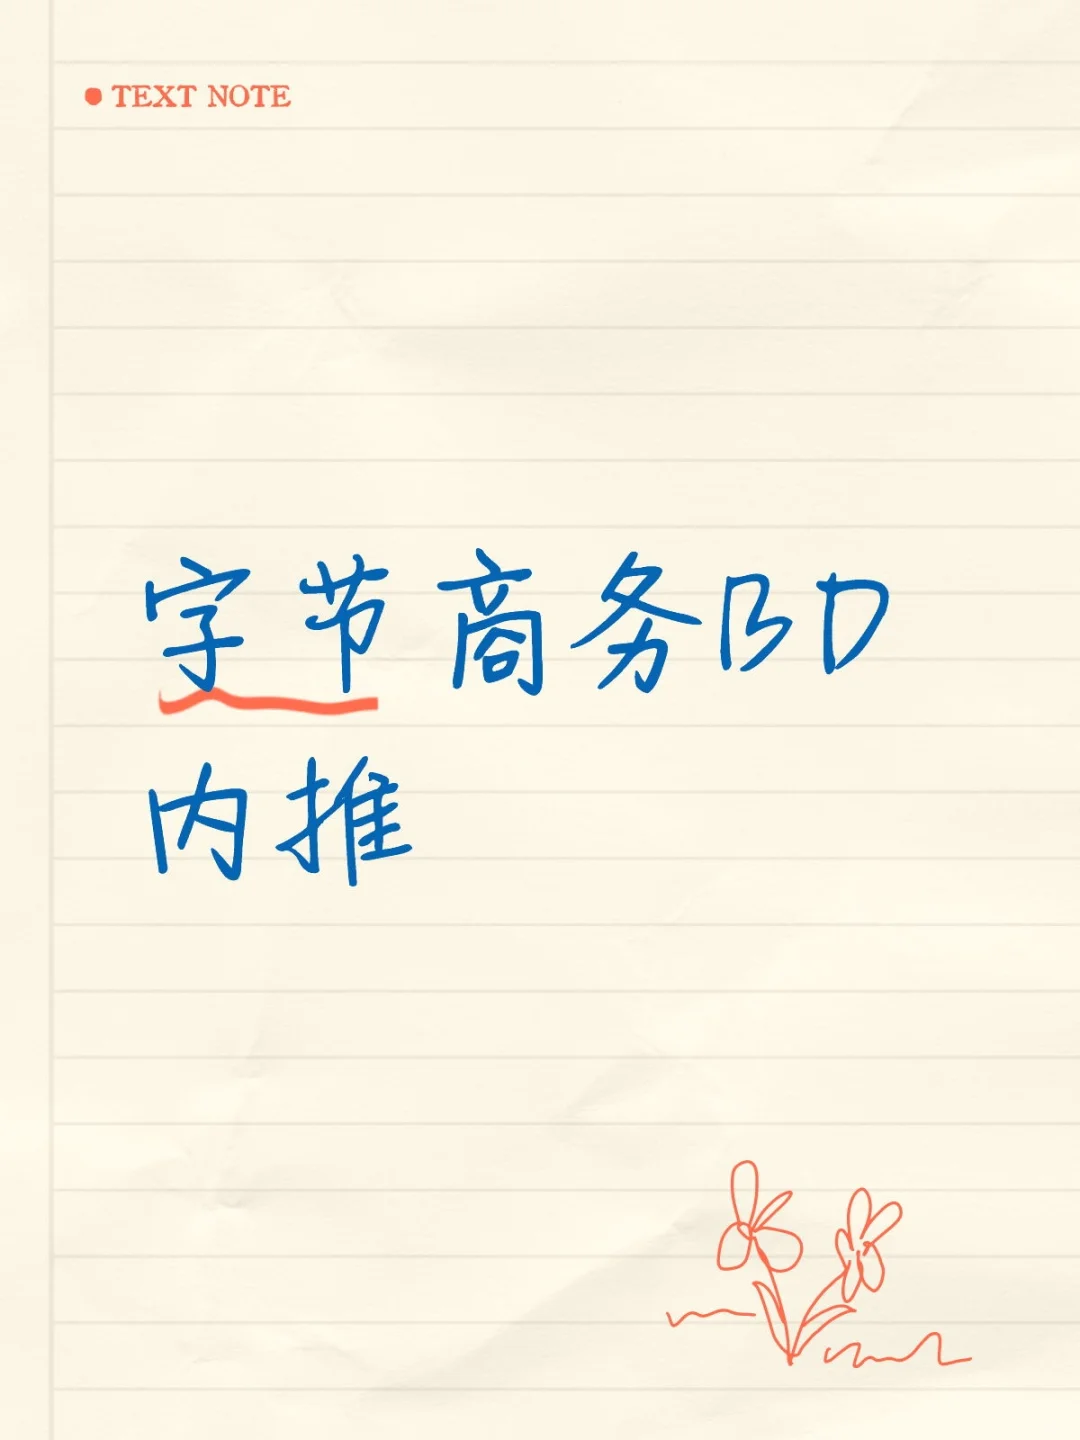 TEXT NOTE
字节商务BD
内推